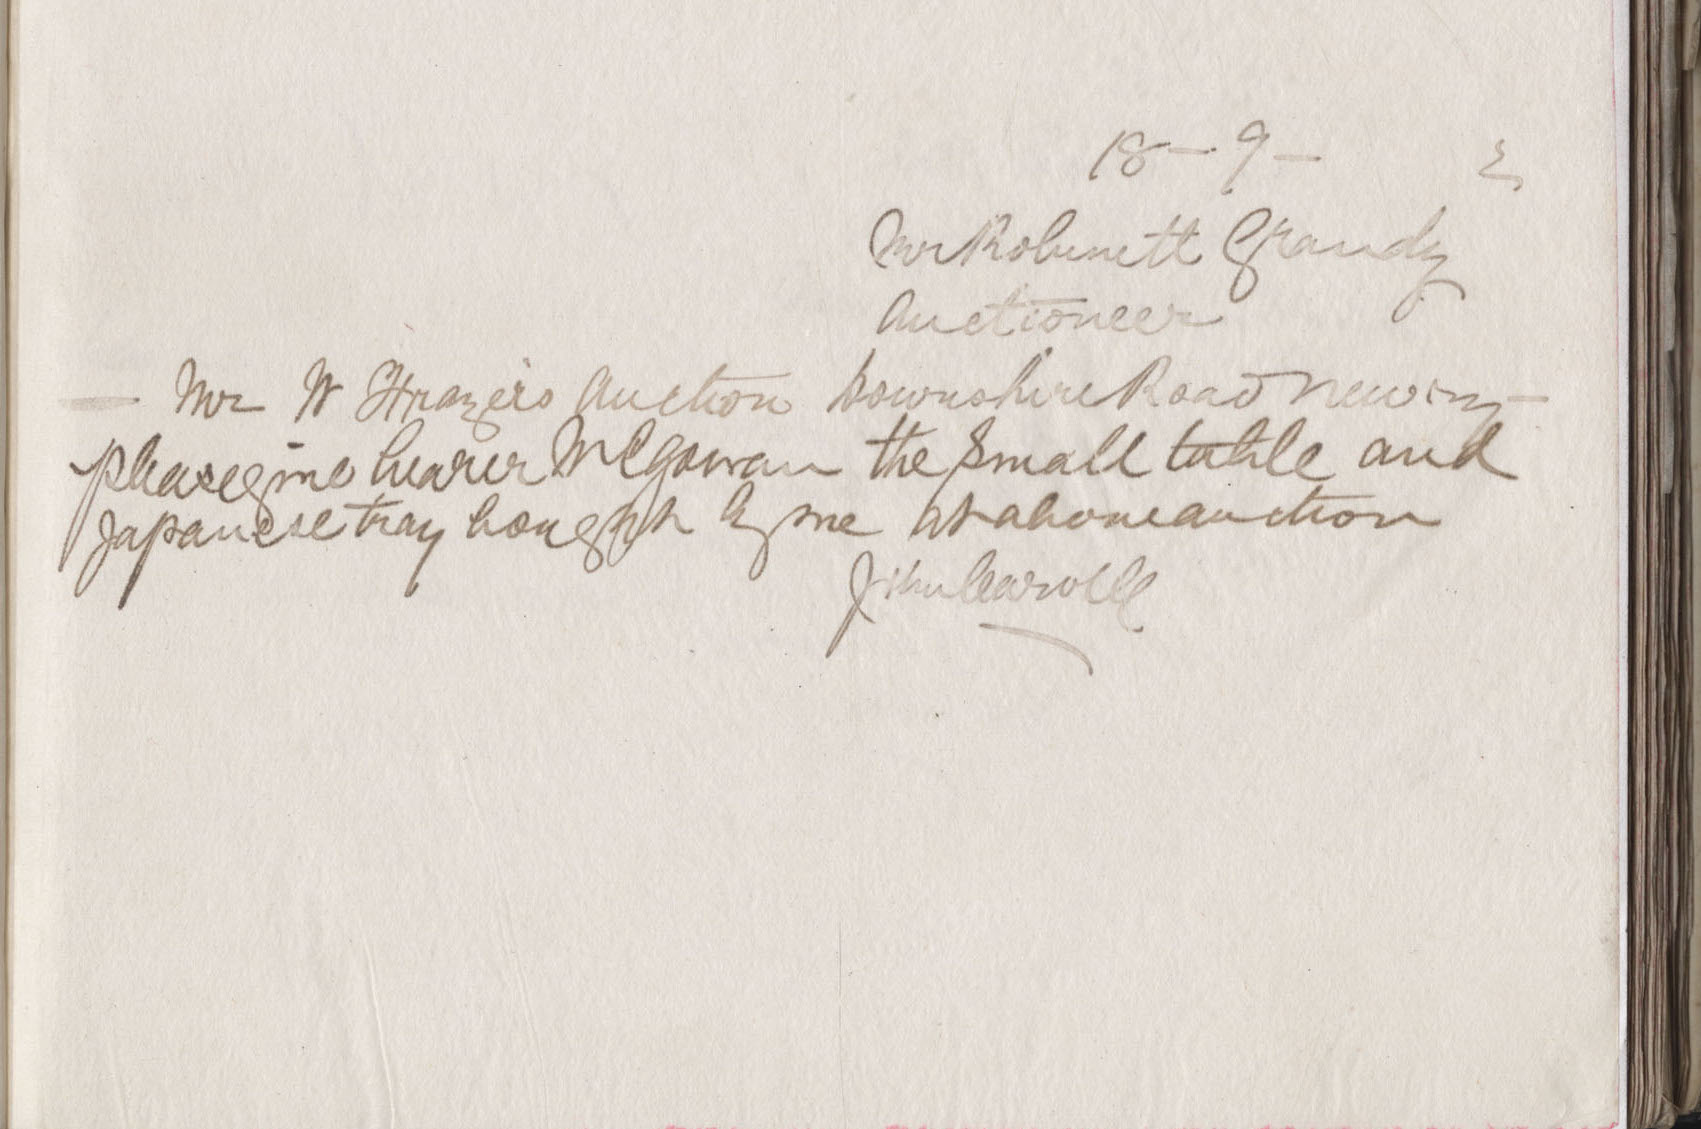 18 – 9 –
Mr Robinett Grandy
Auctioneer
— Mr W Frazers Auction Downshire Road Newry —
please give bearer McGowan the small table and
Japanese tray bought by me at above auction
John Carvill